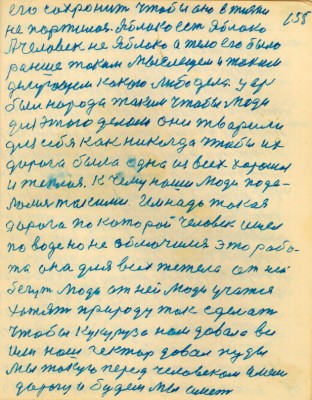 его сохронить чтобы оно в жизни 155
не портился. Яблоко ест Яблоко
А человек не Яблоко а тело его было
раньше таким мыслящем и таким
какого либо дела. у ер
был народа таким чтобы люди
для этого делали они тварили
для себя как никогда чтобы их
дорога была одна из всех хороших
и теплая. К чему наши люди попа-
такими. Им надо такая
дорога по которой человек шел
по воде но не обмочился это рабо-
та она для всех тежела от ней
бегут люди от ней люди учатся
хотят природу так сделать
чтобы кукуруза нам довала все
или нам гектар довал пуды
мы такую перед человеком имеем
дорогу и будем мы иметь